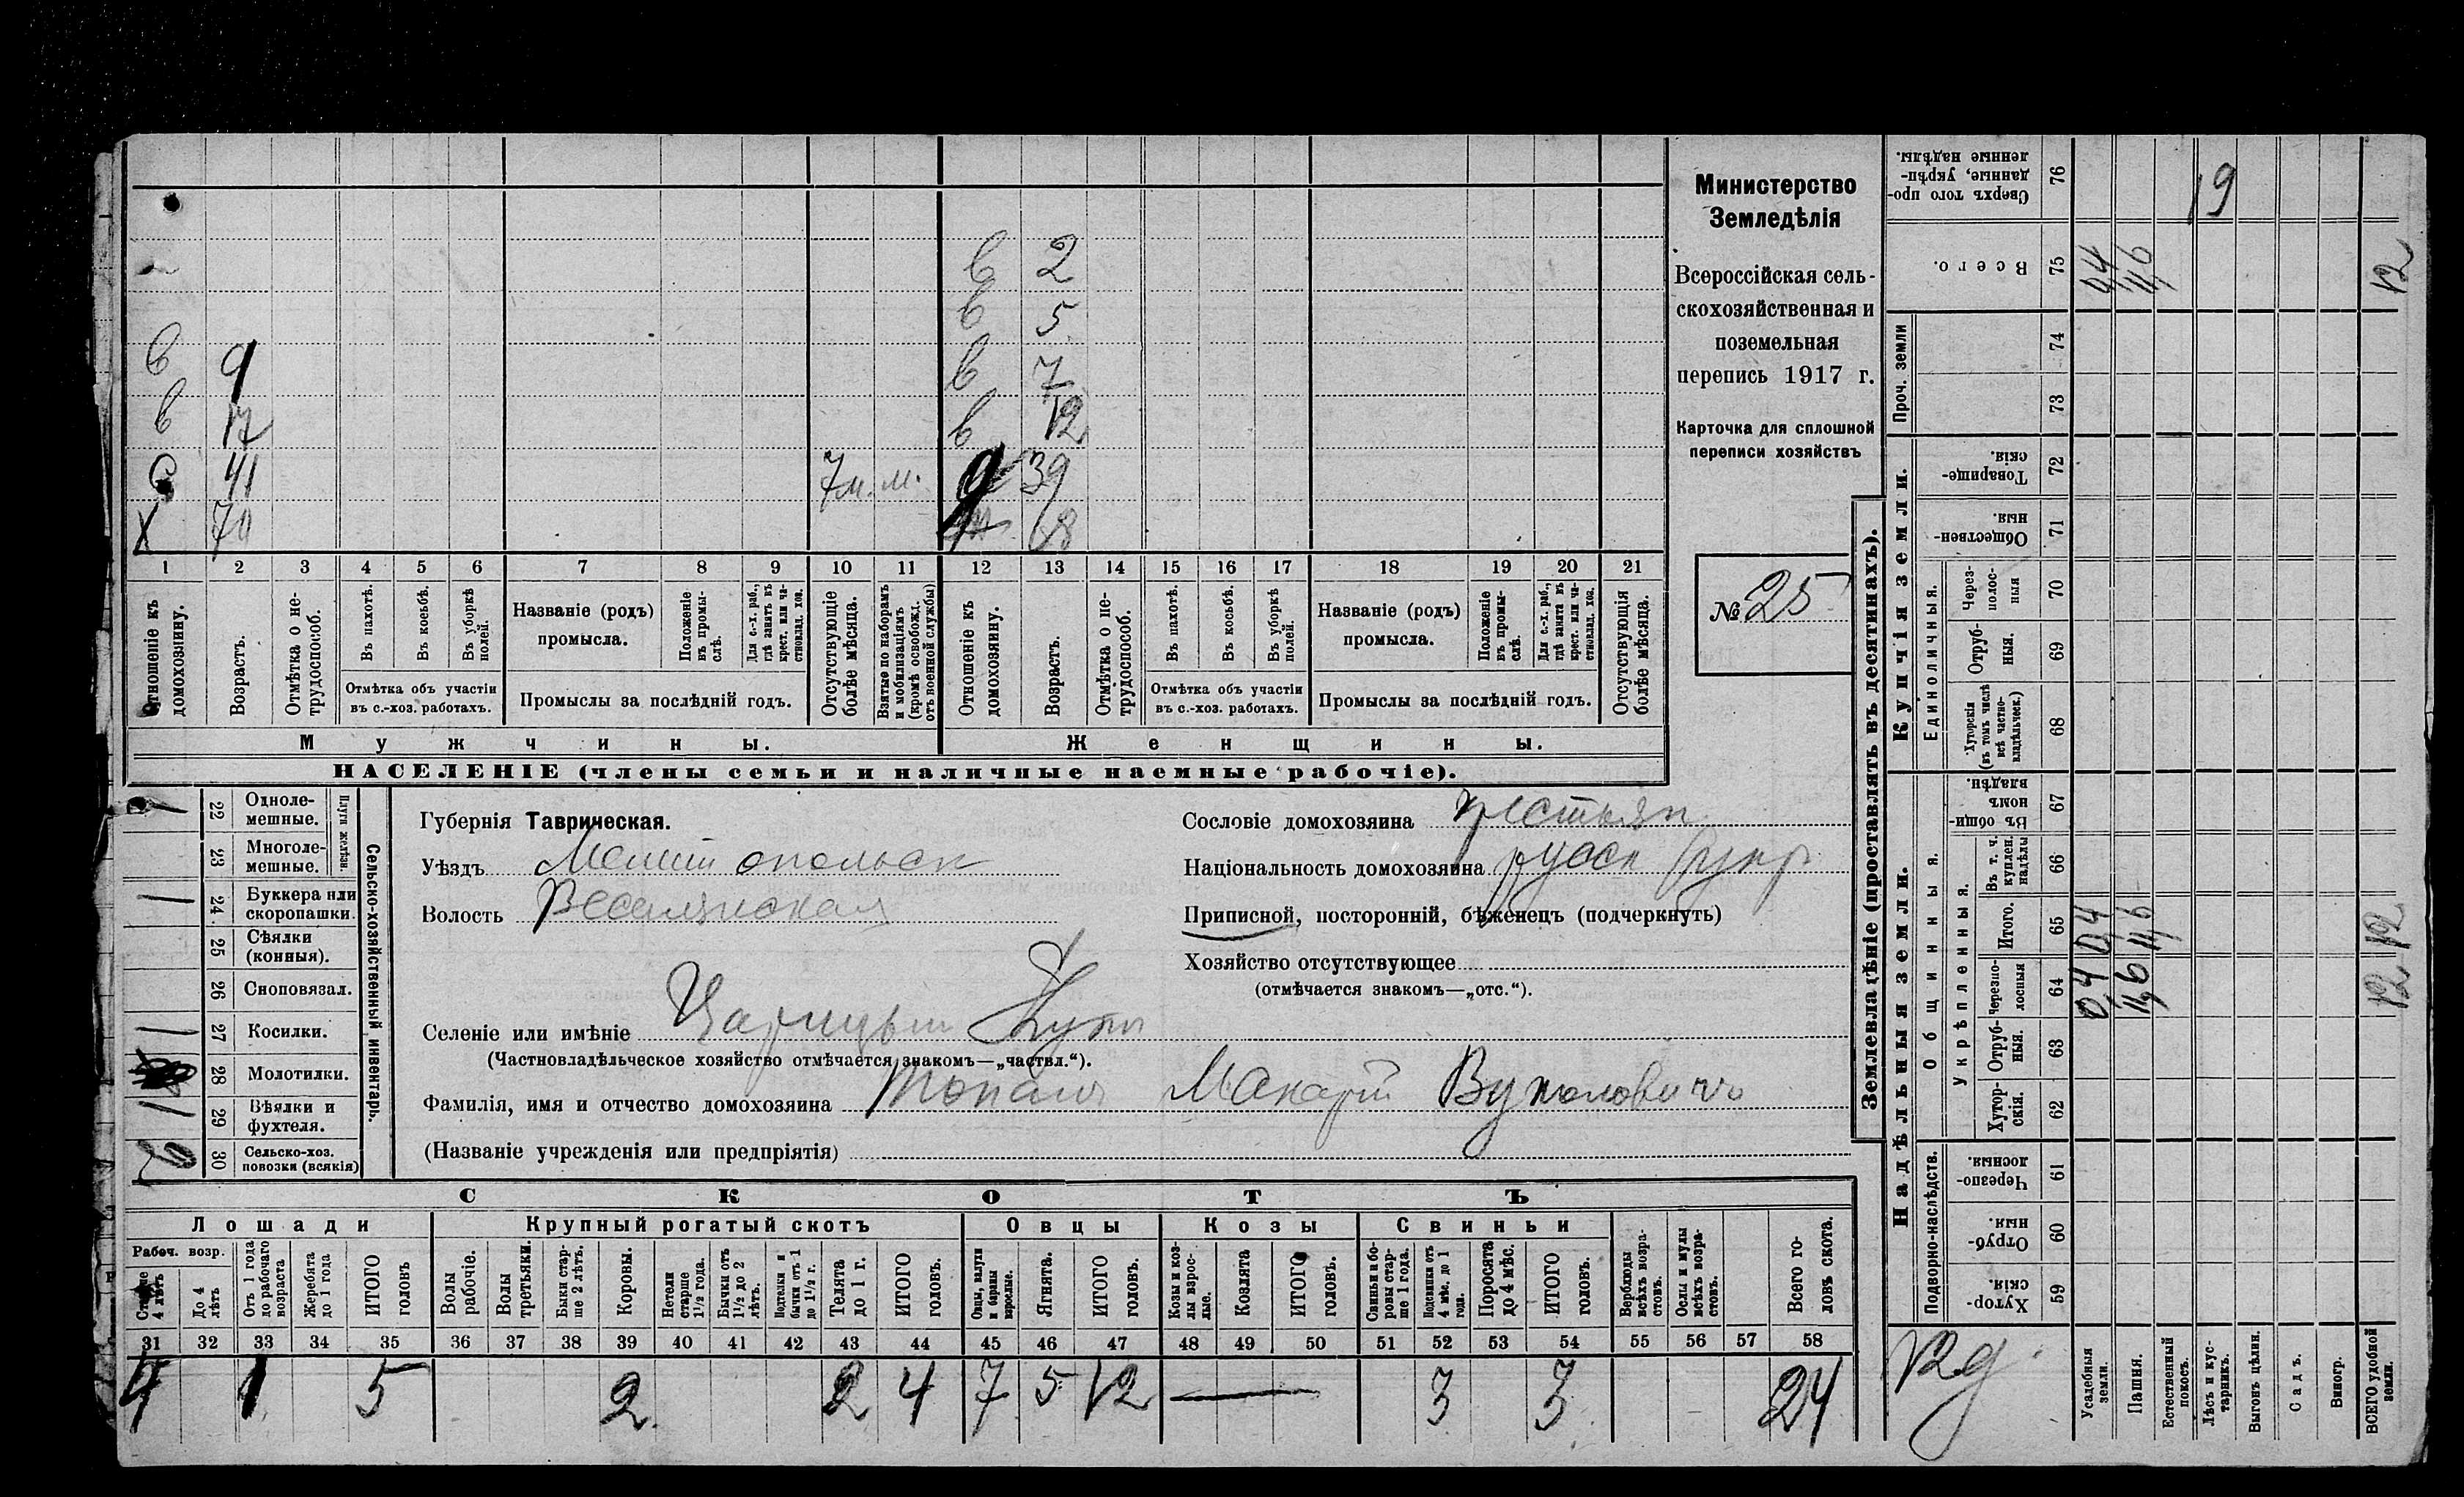 в 2
в 5
в 9 в 7
в 17 в 12
с 41 7м. м. 39
х 70 68
1 2 3 4 5 6 7 8 9 10 11 12 13 14 15 16 17 18 19 20 21
Отношеніе къ домохозяину.
Возрастъ.
Отмѣтка о не-трудоспособ.
Въ пахотѣ.
Въ косьбѣ.
Въ уборкѣ полей.
Отмѣтка объ участіи въ с.-хоз. работахъ.
Названіе (родъ) промысла.
Положеніе въ промы-слѣ.
Для с.-х. раб., гдѣ занятъ въ крест. или ча-стновлад. хоз.
Промыслы за послѣдній годъ.
Отсутствующіе болѣе мѣсяца.
Взятые по наборамъ и мобилизаціямъ (кромѣ освобожд. отъ военной службы)
Отношеніе къ домохозяину.
Возрастъ.
Отмѣтка о не-трудоспособ.
Въ пахотѣ.
Въ косьбѣ.
Въ уборкѣ полей.
Отмѣтка объ участіи въ с.-хоз. работахъ.
Названіе (родъ) промысла.
Положеніе въ промы-слѣ.
Для с.-х. раб., гдѣ занята въ крест. или ча-стновлад. хоз.
Промыслы за послѣдній годъ.
Отсутствующія болѣе мѣсяца.
Мужчины. Женщины.
НАСЕЛЕНІЕ (члены семьи и наличные наемные рабочіе).
Министерство
Земледѣлія
Всероссійская сель-
скохозяйственная и
поземельная
перепись 1917 г.
Карточка для сплошной
переписи хозяйствъ
№ 25
Сельско-хозяйственный инвентарь.
Плуги желѣзн.
1 22 Одноле-мешные.
23 Многоле-мешные.
1 24 Буккера или скоропашки.
25 Сѣялки (конныя).
26 Сноповязал.
1 27 Косилки.
28 Молотилки.
1 29 Вѣялки и фухтеля.
30 Сельско-хоз. повозки (всякія)
Губернія Таврическая.
Уѣздъ Мелитопольск
Волость Веселянская
Сословіе домохозяина крестьян
Національность домохозяина русск (укр
Приписной, посторонній, бѣженецъ (подчеркнуть)
Хозяйство отсутствующее
(отмѣчается знакомъ—„отс.“).
Селеніе или имѣніе Царицын Кут
(Частновладѣльческое хозяйство отмѣчается знакомъ—„частвл.“).
Фамилія, имя и отчество домохозяина Топала Макарій Вуколович
(Названіе учрежденія или предпріятія)
СКОТЪ
Лошади Крупный рогатый скотъ Овцы Козы Свиньи
Рабоч. возр.
Старше 4 лѣтъ
До 4 лѣтъ
Отъ 1 года до рабочаго возраста
Жеребята до 1 года
ИТОГО головъ
Волы рабочіе.
Волы третьяки.
Быки стар-ше 2 лѣтъ.
Коровы.
Нетели старше 1½ года.
Бычки отъ 1½ до 2 лѣтъ.
Подтелки и бычки отъ 1 до 1½ г.
Телята до 1 г.
ИТОГО головъ.
Овцы, валухи и бараны взрослые.
Ягнята.
ИТОГО головъ.
Козы и коз-лы взрос-лые.
Козлята
ИТОГО головъ.
Свиньи и бо-ровы стар-ше 1 года.
Подсвинки отъ 4 мѣс. до 1 года.
Поросята до 4 мѣс.
ИТОГО головъ.
Верблюды всѣхъ возра-стовъ.
Ослы и мулы всѣхъ возра-стовъ.
Всего го-ловъ скота.
31 32 33 34 35 36 37 38 39 40 41 42 43 44 45 46 47 48 49 50 51 52 53 54 55 56 57 58
4 1 5 2 2 4 7 5 12 — 3 3 24
Землевладѣніе (проставлять въ десятинахъ).
Надѣльныя земли. Купчія земли.
Подворно-наслѣдств.
Общинныя.
Укрѣпленныя.
Единоличныя.
Проч. земли
59 Хутор-скія.
60 Отруб-ныя.
61 Черезпо-лосныя.
62 Хутор-скія.
63 Отруб-ныя.
64 Черезпо-лосныя 0,4 11,6 12
65 Итого. 0,4 11,6 12
66 Въ т. ч. куплен. надѣлы
67 Въ общин-номъ владѣн.
68 Хуторскія (въ томъ числѣ всѣ частно-владѣльческ.)
69 Отруб-ныя.
70 Через-полос-ныя
71 Обществен-ныя.
72 Товарище-скія.
73
74
75 Всего. 0,4 11,6 12
76 Сверхъ того про-данные, укрѣп-ленные надѣлы. 19
12 д
Усадебныя земли.
Пашня.
Естественный покосъ.
Лѣсъ и кус-тарникъ.
Выгонъ цѣлин.
Садъ.
Виногр.
ВСЕГО удобной земли.